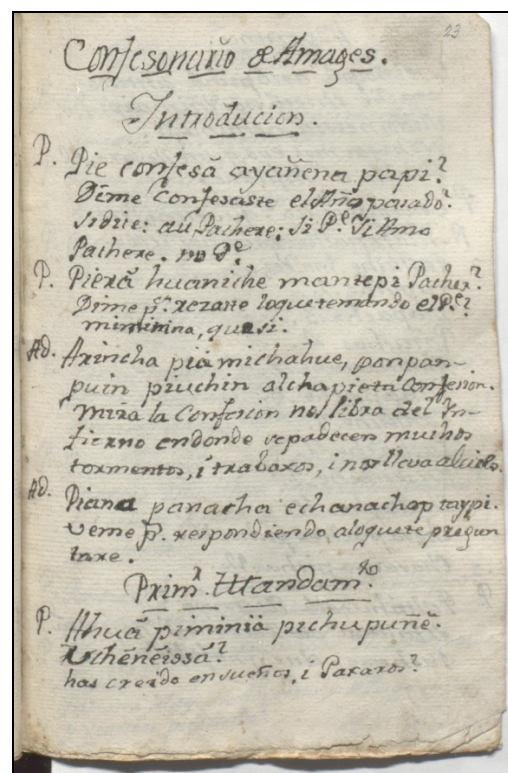 23
Confesonario de Amages.
Introducion.
P. Pie confesā ayañena papi?
Dime Confesaste el Año pasado?
si dice: aú Pachere: si Pe. Si Amo
Pachere. no Pe.
P. Pierā huaniche mantepi Pacher?
Dime pr. rezaste loque temando el Pe?
miminina, que si.
Ad. Arincha piā michahue, ponpan-
puin piuchin alcha pieta Confesion.
Mira la Confesion nos libra del In-
fierno endonde se padecen muchos
tormentos, i trabaxos, i nos lleva al cielo.
Ad. Piana panacha echanachap taypi.
veme pr. respondiendo aloque te pregun
tare.
Primr. Mandamto.
P. Ahuā piminiā pichupuñē.
Vchēnēissā?
has creido en sueños, i Paxaros?